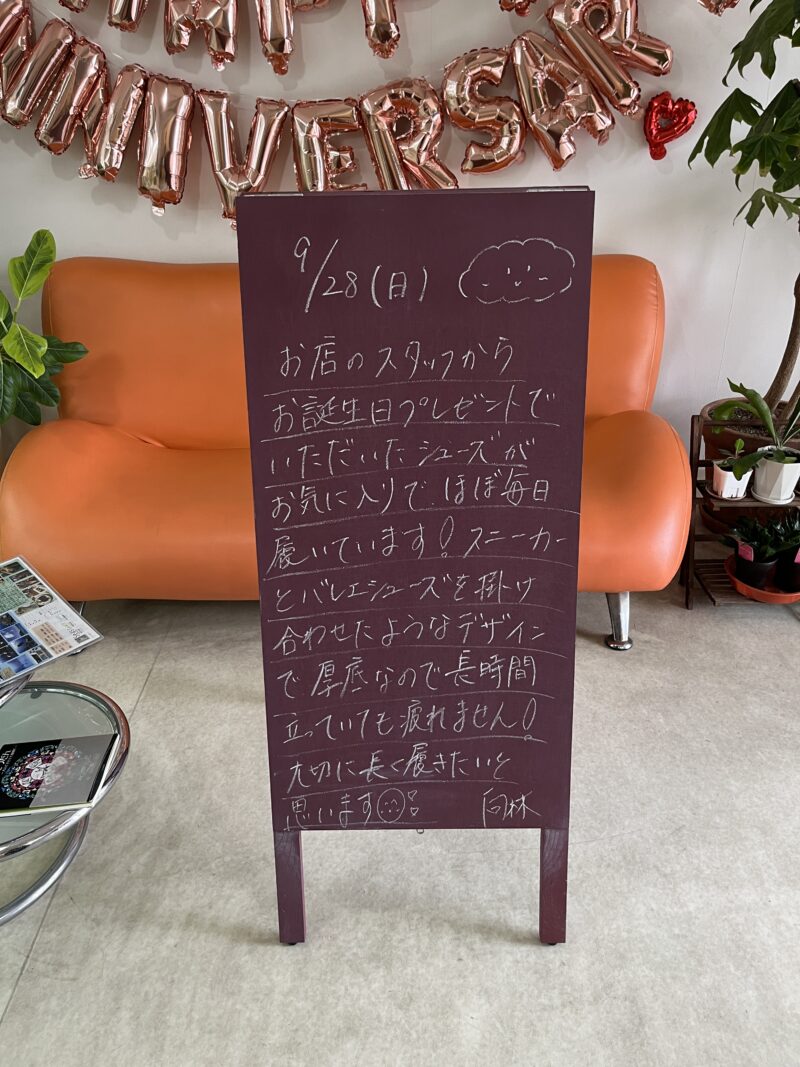 HAPPY
ANNIVERSARY
9/28(日)
お店のスタッフから
お誕生日プレゼントで
いただいたシューズが
お気に入りで、ほぼ毎日
履いています!スニーカー
とバレエシューズを掛け
合わせたようなデザイン
で厚底なので長時間
立っていても疲れません!
大切に長く履きたいと
思います 向林